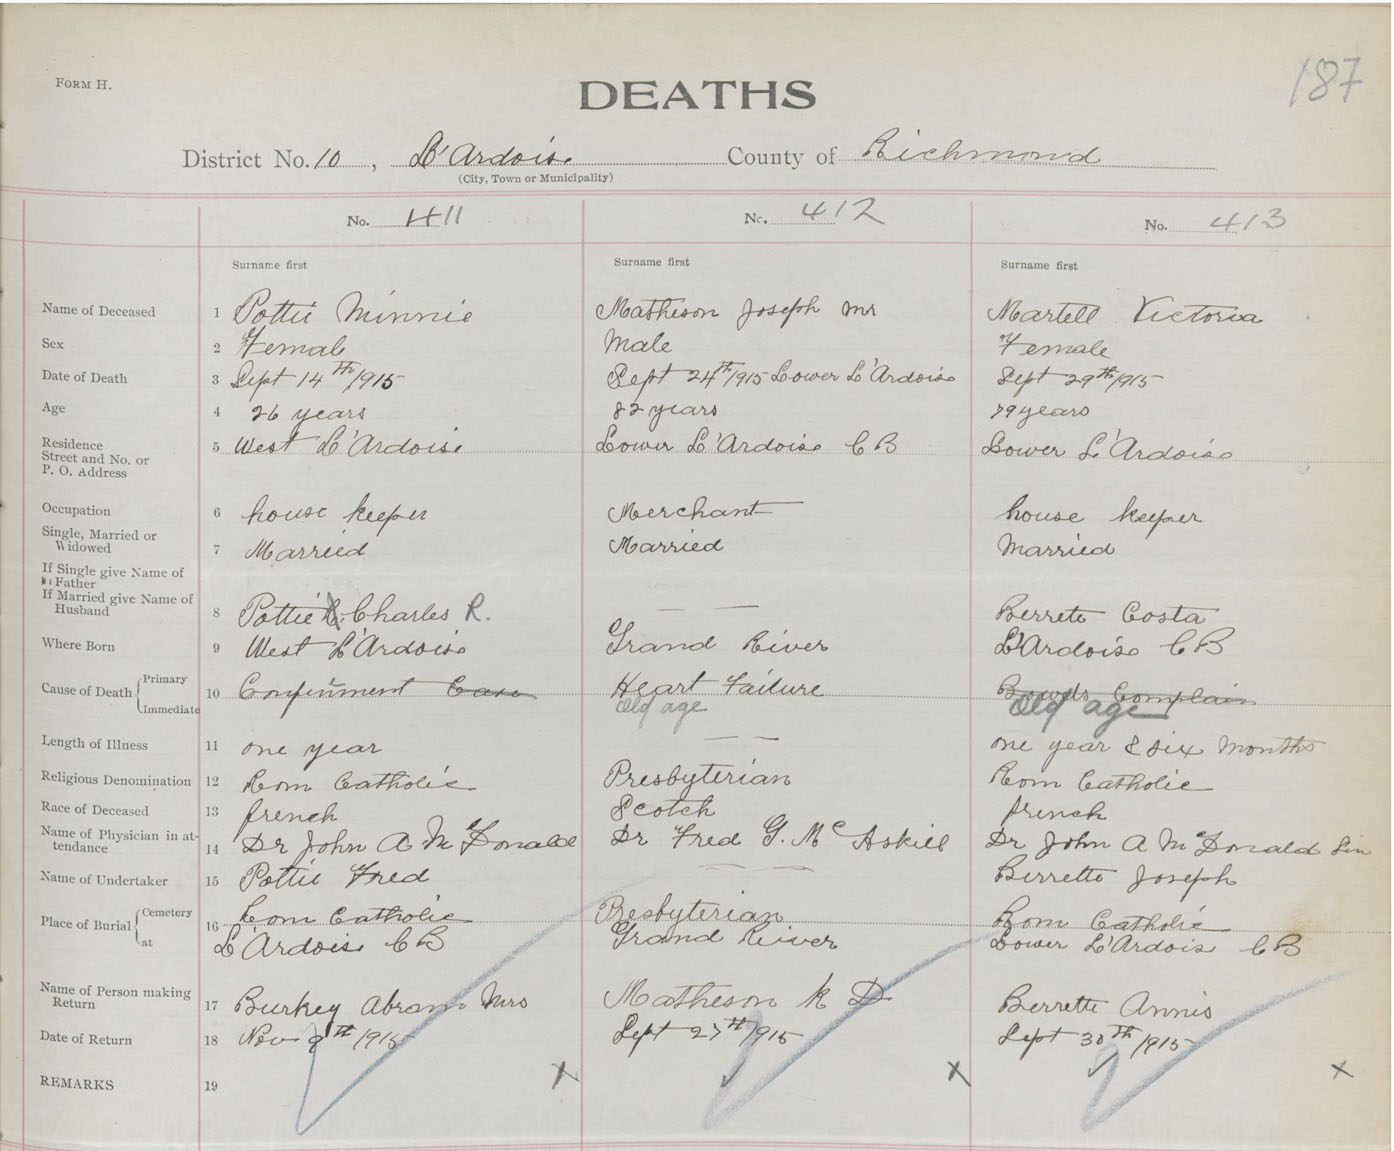 187
FORM H.
DEATHS
District No. 10, L'Ardoise County of Richmond
(City, Town or Municipality)
No. 411 No. 412 No. 413
Surname first Surname first Surname first
Name of Deceased 1 Pottie Minnie Matheson Joseph Mr Martell Victoria
Sex 2 Female Male Female
Date of Death 3 Sept 14th/1915 Sept 24th/1915 Lower L'Ardoise Sept 29th/1915
Age 4 26 years 82 years 79 years
Residence
Street and No. or 5 West L'Ardoise Lower L'Ardoise C B Lower L'Ardoise
P. O. Address
Occupation 6 house keeper Merchant house keeper
Single, Married or
Widowed 7 Married Married Married
If Single give Name of
Father
If Married give Name of
Husband 8 Pottie R. Charles R. — — Berrete Costa
Where Born 9 West L'Ardoise Grand River L'Ardoise C B
Cause of Death Primary Immediate 10 Confinment Case Heart Failure Bowels Complain
Old age Old age
Length of Illness 11 one year — — one year & six months
Religious Denomination 12 Rom Catholic Presbyterian Rom Catholic
Race of Deceased 13 french Scotch french
Name of Physician in at-
tendance 14 Dr John A McDonald Dr Fred G. McAskill Dr John A McDonald Sin
Name of Undertaker 15 Pottie Fred — — Berrette Joseph
Place of Burial Cemetery 16 Rom Catholic Presbyterian Rom Catholic
at L'Ardois C B Grand River Lower L'Ardois C B
Name of Person making
Return 17 Burkey Abram Mrs Matheson K D Berrette Annis
Date of Return 18 Nov 9th/1915 Sept 27th/1915 Sept 30th/1915
REMARKS 19 X X X